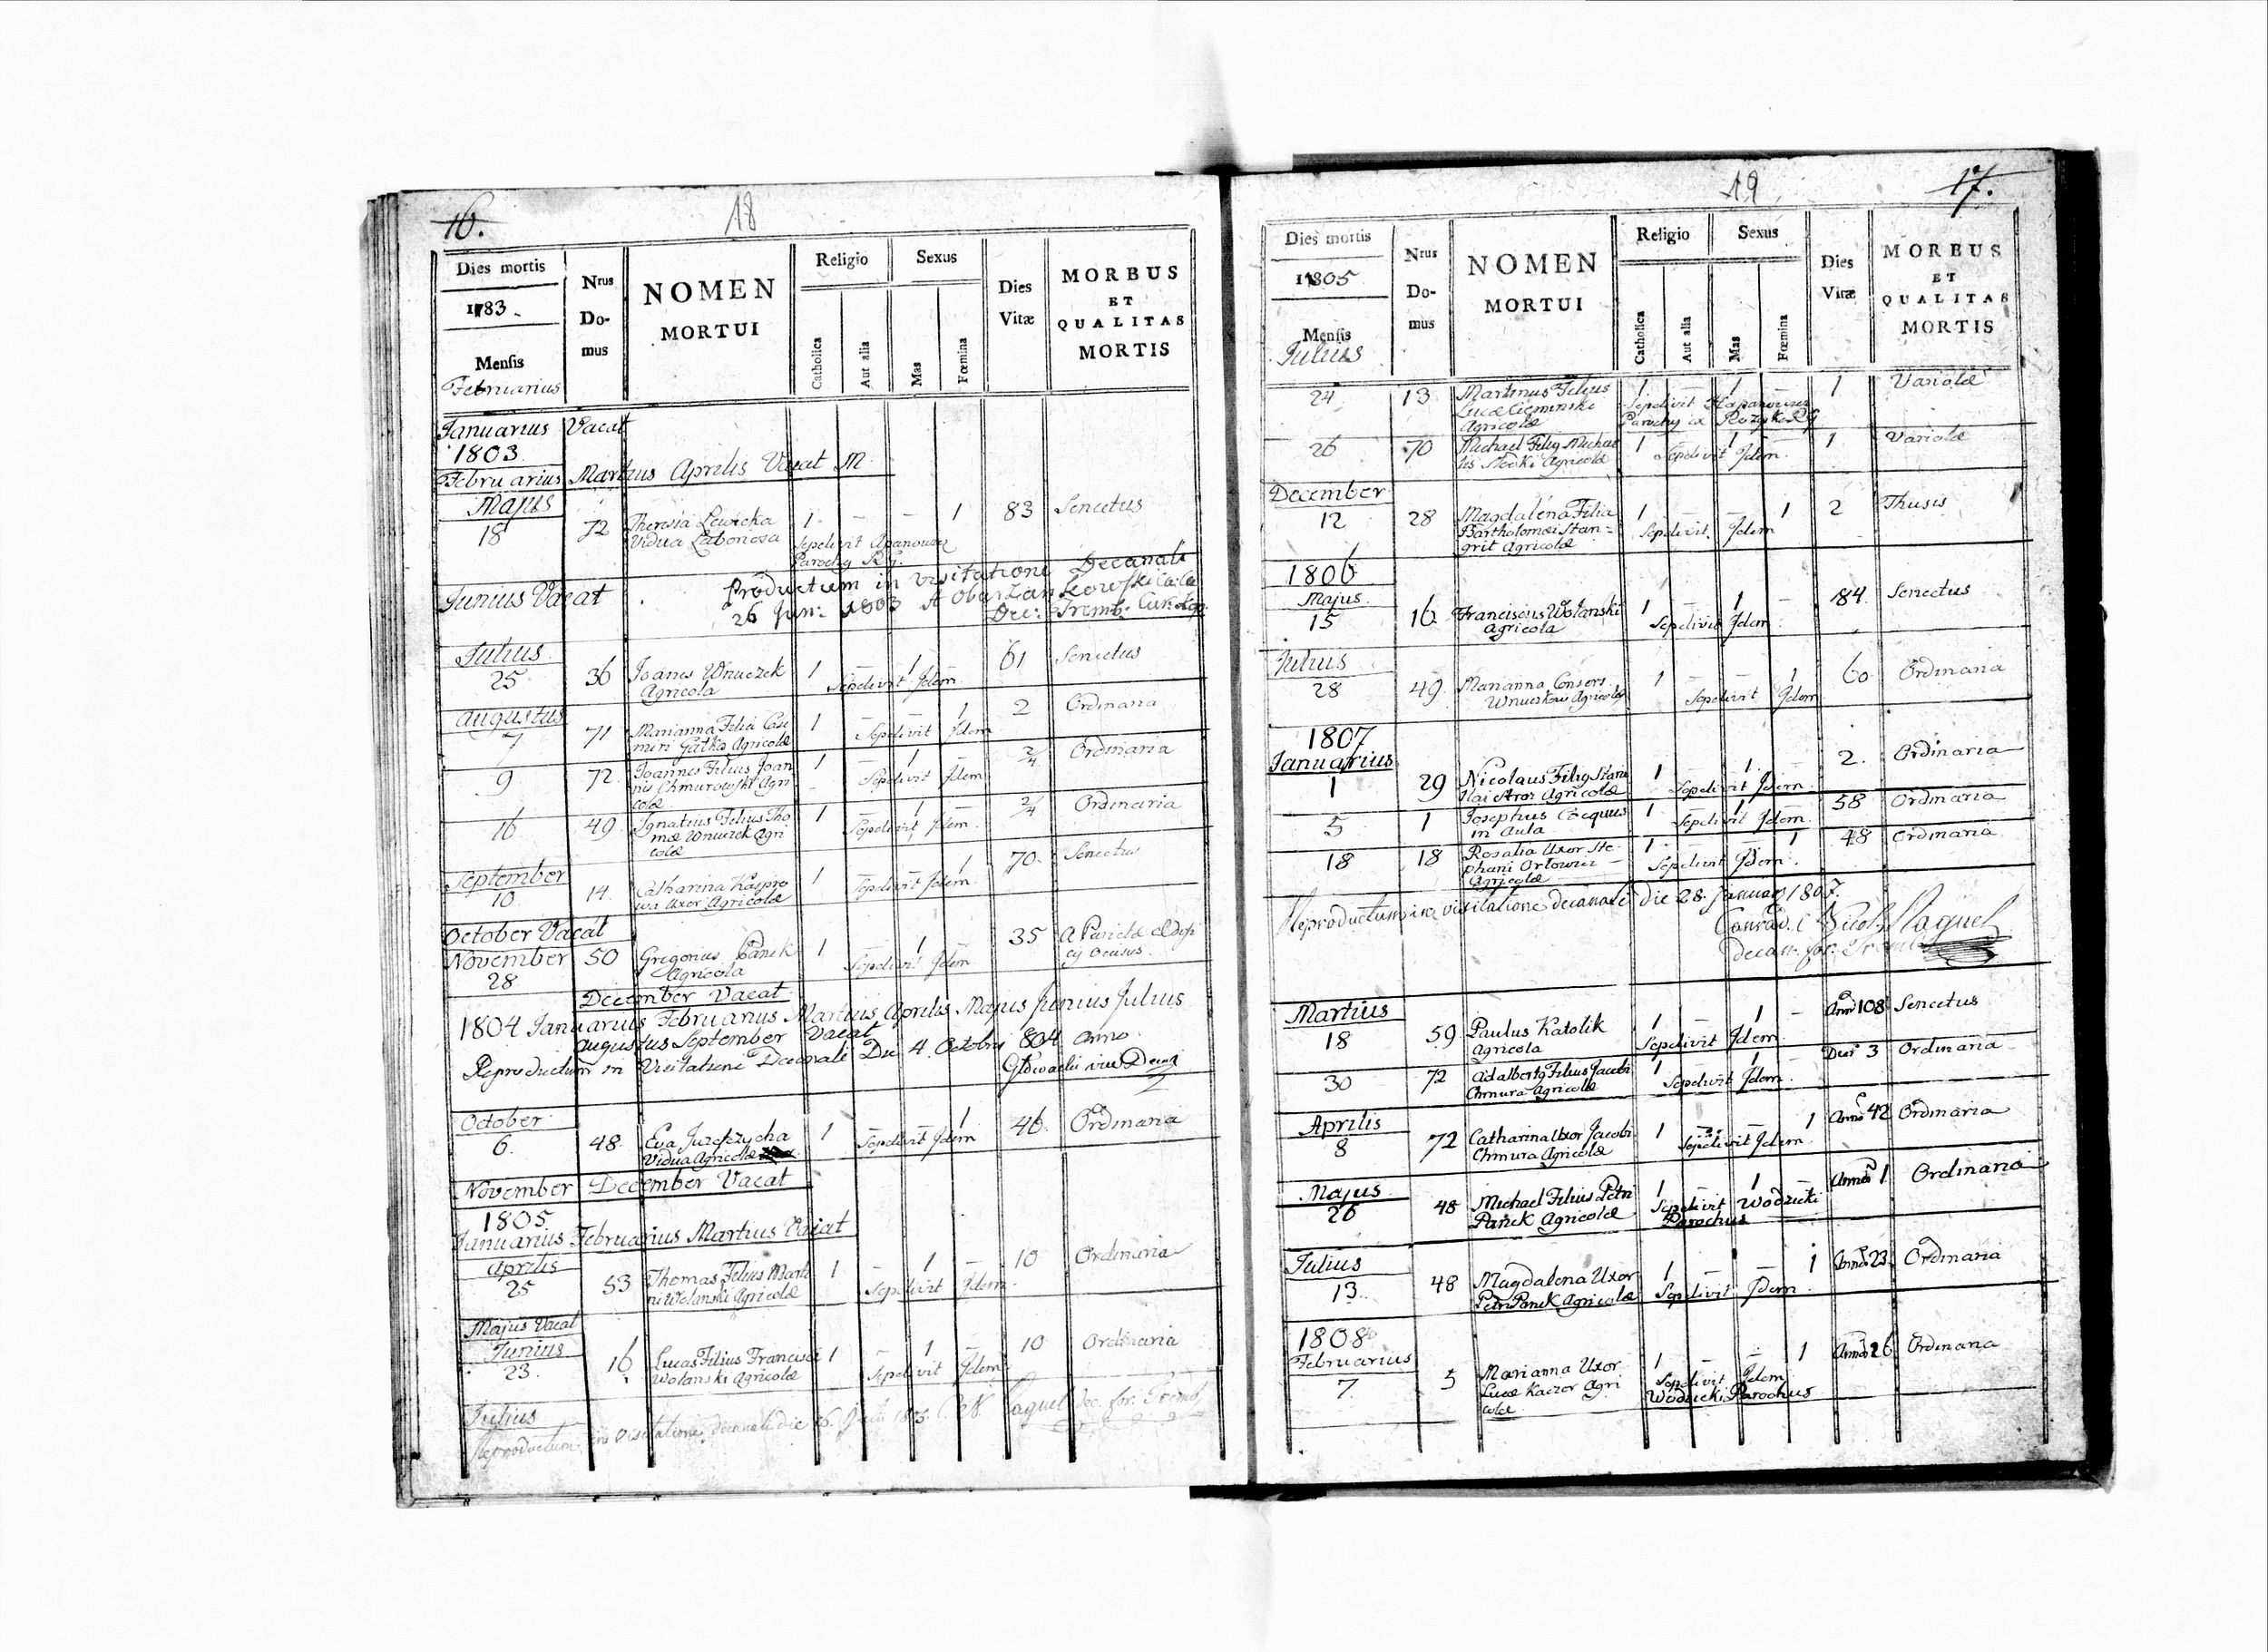 16.
18
Dies mortis
1783
Mensis
Februarius
Nrus
Do-
mus
NOMEN
MORTUI
Religio
Catholica
Aut alia
Sexus
Mas
Fœmina
Dies
Vitæ
MORBUS
ET
QUALITAS
MORTIS
Januarius Vacat
1803
Februarius Martius Aprilis Vacat M
Majus
18 72 Theresia Lewicka 1 – – 1 83 Senectus
Vidua Labonosa
Sepelivit Apanowicz
Parochy
Junius Vacat
Productum in visitatione Decanali
26 Jun: 1803
Dec: Tremb:
Julius
25 36 Joanes Wnuczek 1 – 1 – 61 Senectus
Agricola Sepelivit Idem
Augustus
7 71 Marianna Filia Casi 1 – – 1 2 Ordinaria
miri Gatka Agricolæ Sepelivit Idem
9 72 Joannes Filius Joan 1 – 1 – 2/4 Ordinaria
nis Chmurowski Agri Sepelivit Idem
colæ
16 49 Ignatius Filius Tho 1 – 1 – 2/4 Ordinaria
mæ Wnuczek Agri Sepelivit Idem
colæ
September
10 14 Catharina Kaspro 1 – – 1 70 Senectus
wa Uxor Agricolæ Sepelivit Idem
October Vacat
November
28 50 Gregorius Panek 1 – 1 – 35 A Pariete
Agricola Sepelivit Idem
December Vacat
1804 Januarius Februarius Martius Aprilis Majus Junius Julius
Augustus September Vacat
Reproductum in Visitatione Decanali Die 4 Octobris 804 Anno
October
6. 48. Eva 1 – – 1 46 Ordinaria
Vidua Agricolæ Sepelivit Idem
November December Vacat
1805
Januarius Februarius Martius Vacat
Aprilis
25 53 Thomas Filius Marti 1 – 1 – 10 Ordinaria
ni Wolanski Agricolæ Sepelivit Idem
Majus Vacat
Junius
23. 16 Lucas Filius Francisci 1 – 1 – 10 Ordinaria
Wolanski Agricolæ Sepelivit Idem
Julius
Reproductum in visitatione decanali die Julii 1805
19
17.
Dies mortis
1805
Mensis
Julius
Nrus
Do-
mus
NOMEN
MORTUI
Religio
Catholica
Aut alia
Sexus
Mas
Fœmina
Dies
Vitæ
MORBUS
ET
QUALITAS
MORTIS
24 13 Martinus Filius 1 – 1 – 1 Variolæ
Lucæ Cieminski Sepelivit Hapanowicz
Agricolæ Parochy
26 70 Michael Filiy Micha 1 – 1 – 1 Variolæ
lis Agricolæ Sepelivit Idem
December
12 28 Magdalena Filia 1 – – 1 2 Thusis
Bartholomæi Stan= Sepelivit Idem
grit Agricolæ
1806
Majus
15 16 Franciscus Wolanski 1 – 1 – 84 Senectus
Agricola Sepelivit Idem
Julius
28 49 Marianna Consors 1 – – 1 60 Ordinaria
Agricolæ Sepelivit Idem
1807
Januarius
1 29 Nicolaus Filiy Stanis 1 – 1 – 2. Ordinaria
lai Agricolæ Sepelivit Idem
5 1 Josephus Cocquus 1 – 1 – 58 Ordinaria
in Aula Sepelivit Idem
18 18 Rosalia Uxor Ste 1 – – 1 48 Ordinaria
phani Orlowicz Sepelivit Idem
Agricolæ
Reproductum in visitatione decanali die 28. January 1807.
Martius
18 59 Paulus Katolik 1 – 1 – Anno 108 Senectus
Agricola Sepelivit Idem
30 72 Adalberty Filius Jacobi 1 – 1 Dies 3 Ordinaria
Chmura Agricolæ Sepelivit Idem
Aprilis
8 72 Catharina Uxor Jacobi 1 1 Anno 42 Ordinaria
Chmura Agricolæ Sepelivit Idem
Majus
26 48 Michael Filius Petri 1 – 1 – Anno 1 Ordinaria
Panek Agricolæ Sepelivit Wodzicki
Parochus
Julius
13 48 Magdalena Uxor 1 – – 1 Anno 23 Ordinaria
Petri Panek Agricolæ Sepelivit Idem
1808
Februarius
7 5 Marianna Uxor 1 – – 1 Anno 26 Ordinaria
Lucæ Kaczor Agri Sepelivit Idem
colæ Wodzicki Parochus